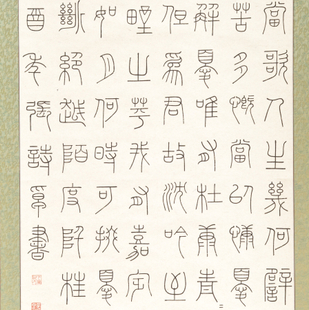 當歌人生幾何譬
苦多慨當以慷憂
解憂唯有杜康青
但為君故沈吟至
野之苹我有嘉賓
如月何時可掇憂
斷絕越陌度阡枉
酉年張詩書